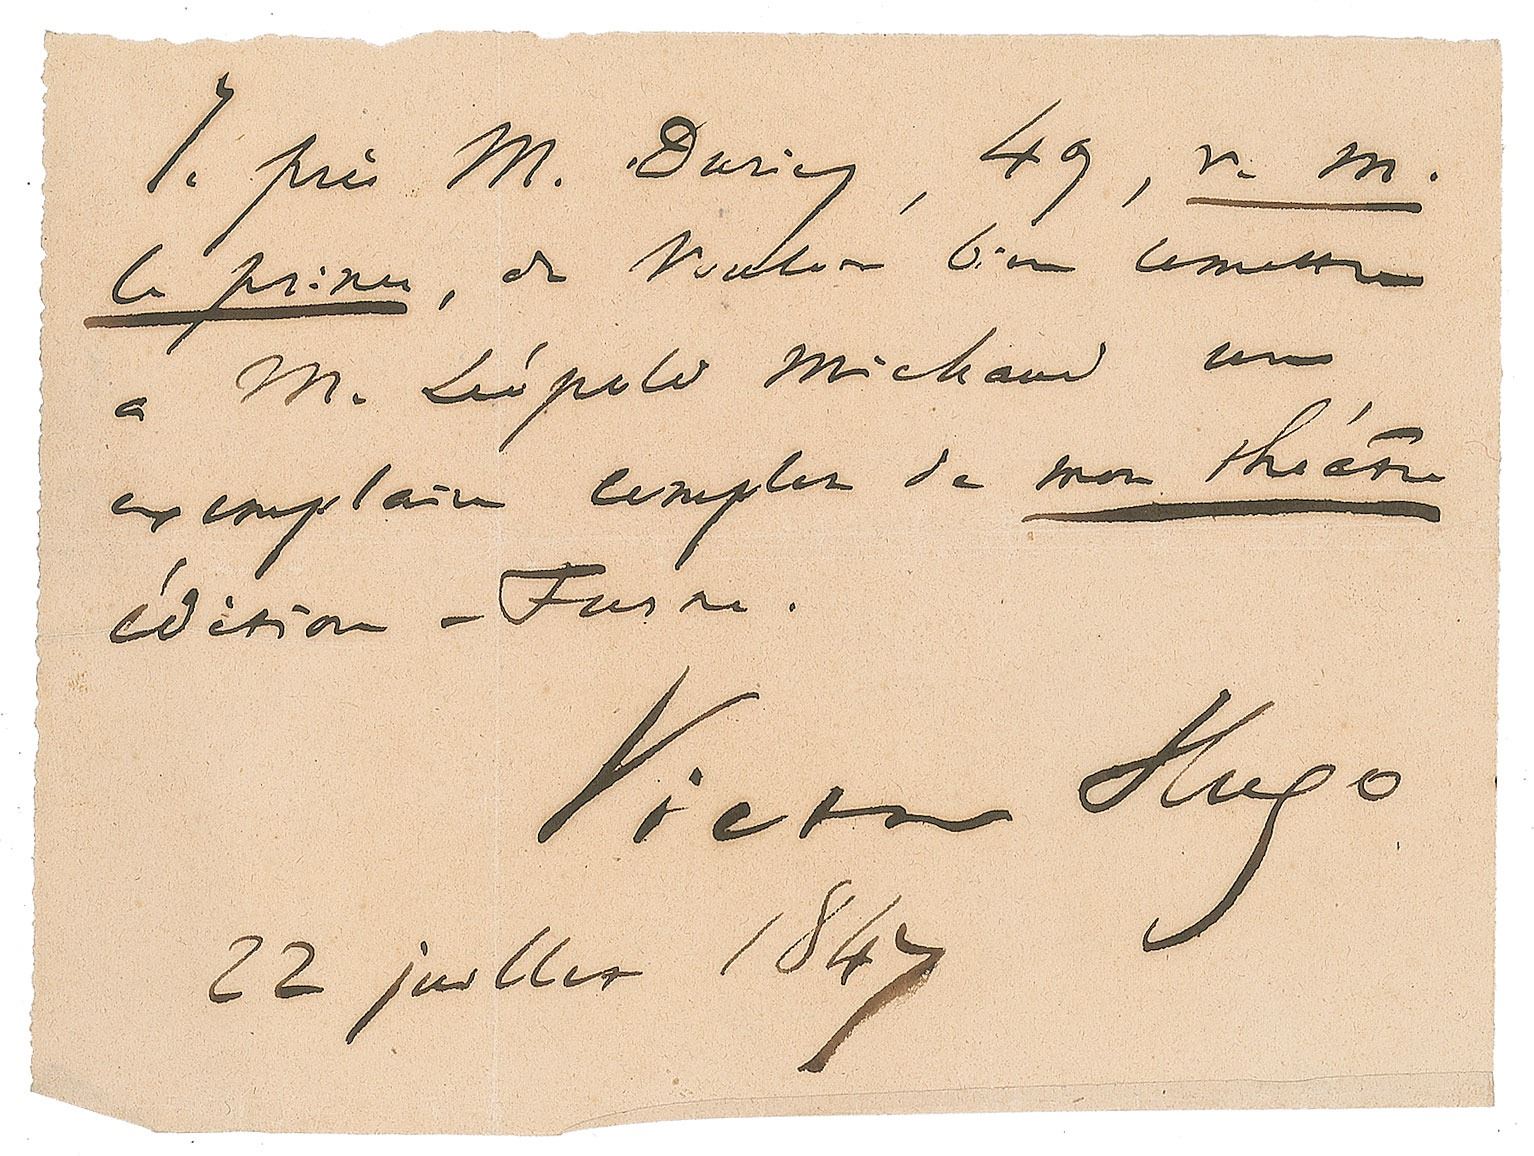 Je prie M. Duriez, 49, r. M.
le prince, de vouloir bien remettre
à M. Léopold Michaud un
exemplaire complet de mon théâtre
édition – Furne.
Victor Hugo
22 juillet 1847